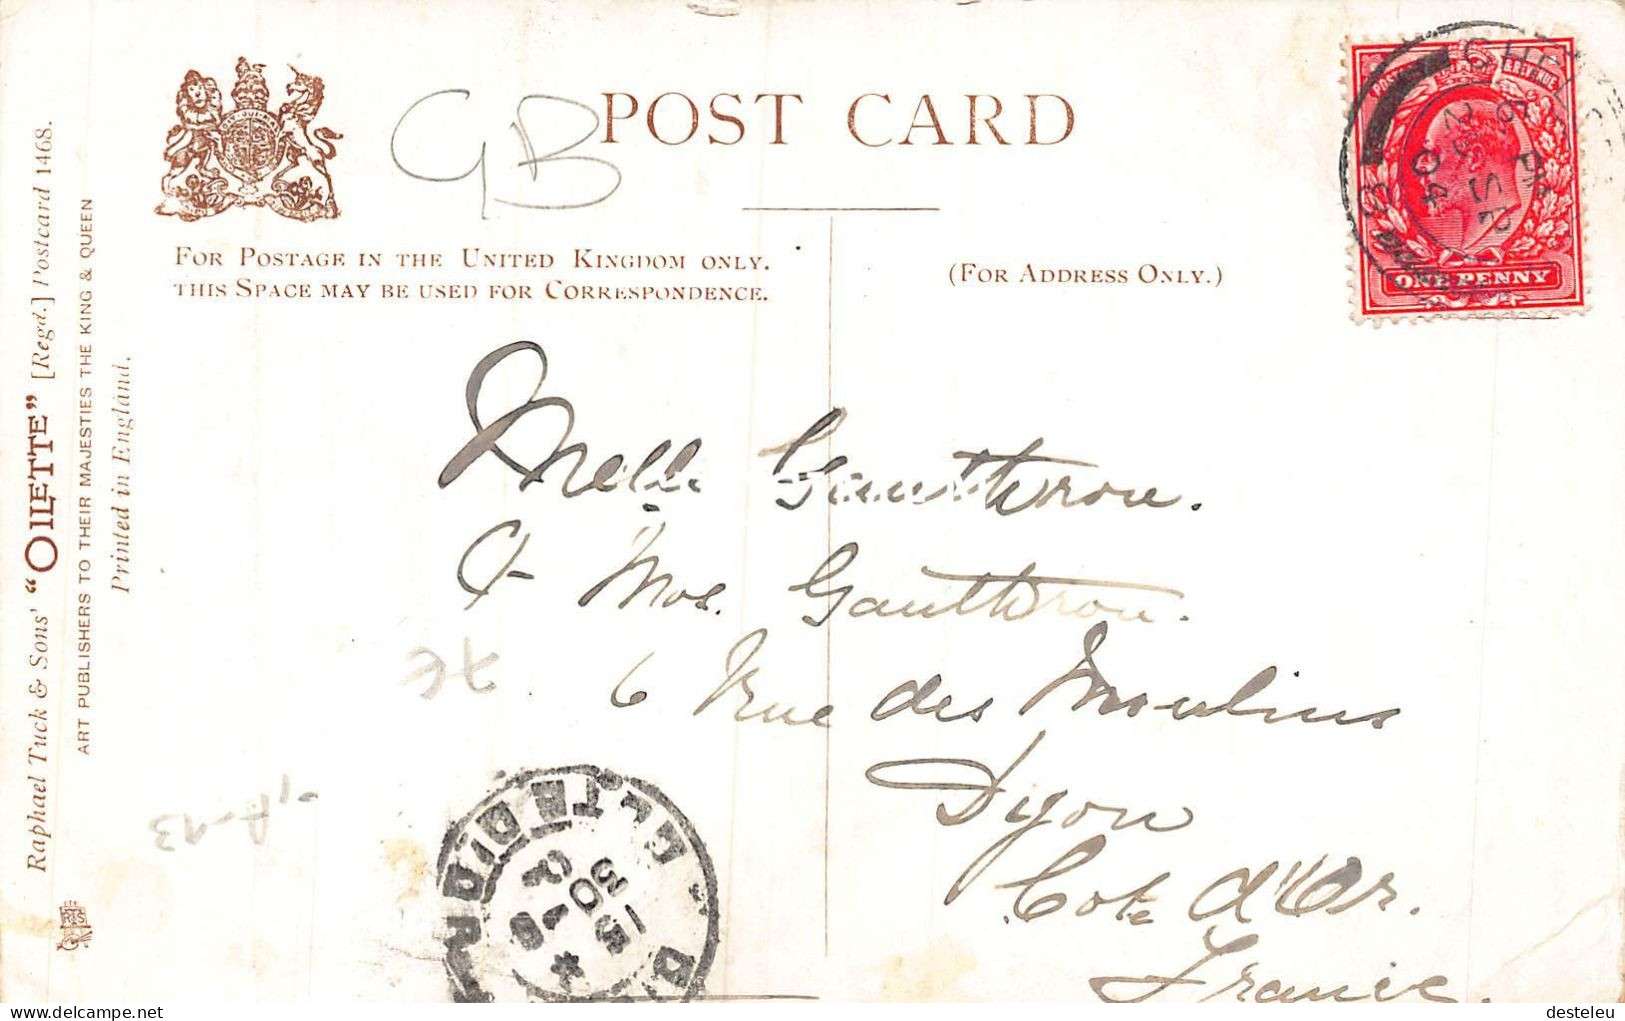 POST CARD
GB
FOR POSTAGE IN THE UNITED KINGDOM ONLY.
THIS SPACE MAY BE USED FOR CORRESPONDENCE.
(FOR ADDRESS ONLY.)
POSTAGE REVENUE
ONE PENNY
Raphael Tuck & Sons' "OILETTE" [Regd.] Postcard 1468.
ART PUBLISHERS TO THEIR MAJESTIES THE KING & QUEEN
Printed in England.
Melle Gautheron.
Mos. Gautheron.
6 Rue des Moulins
Dyon
Cote d'Or.
France.
7€
COTE D'OR
15
30
delcampe.net
desteleu